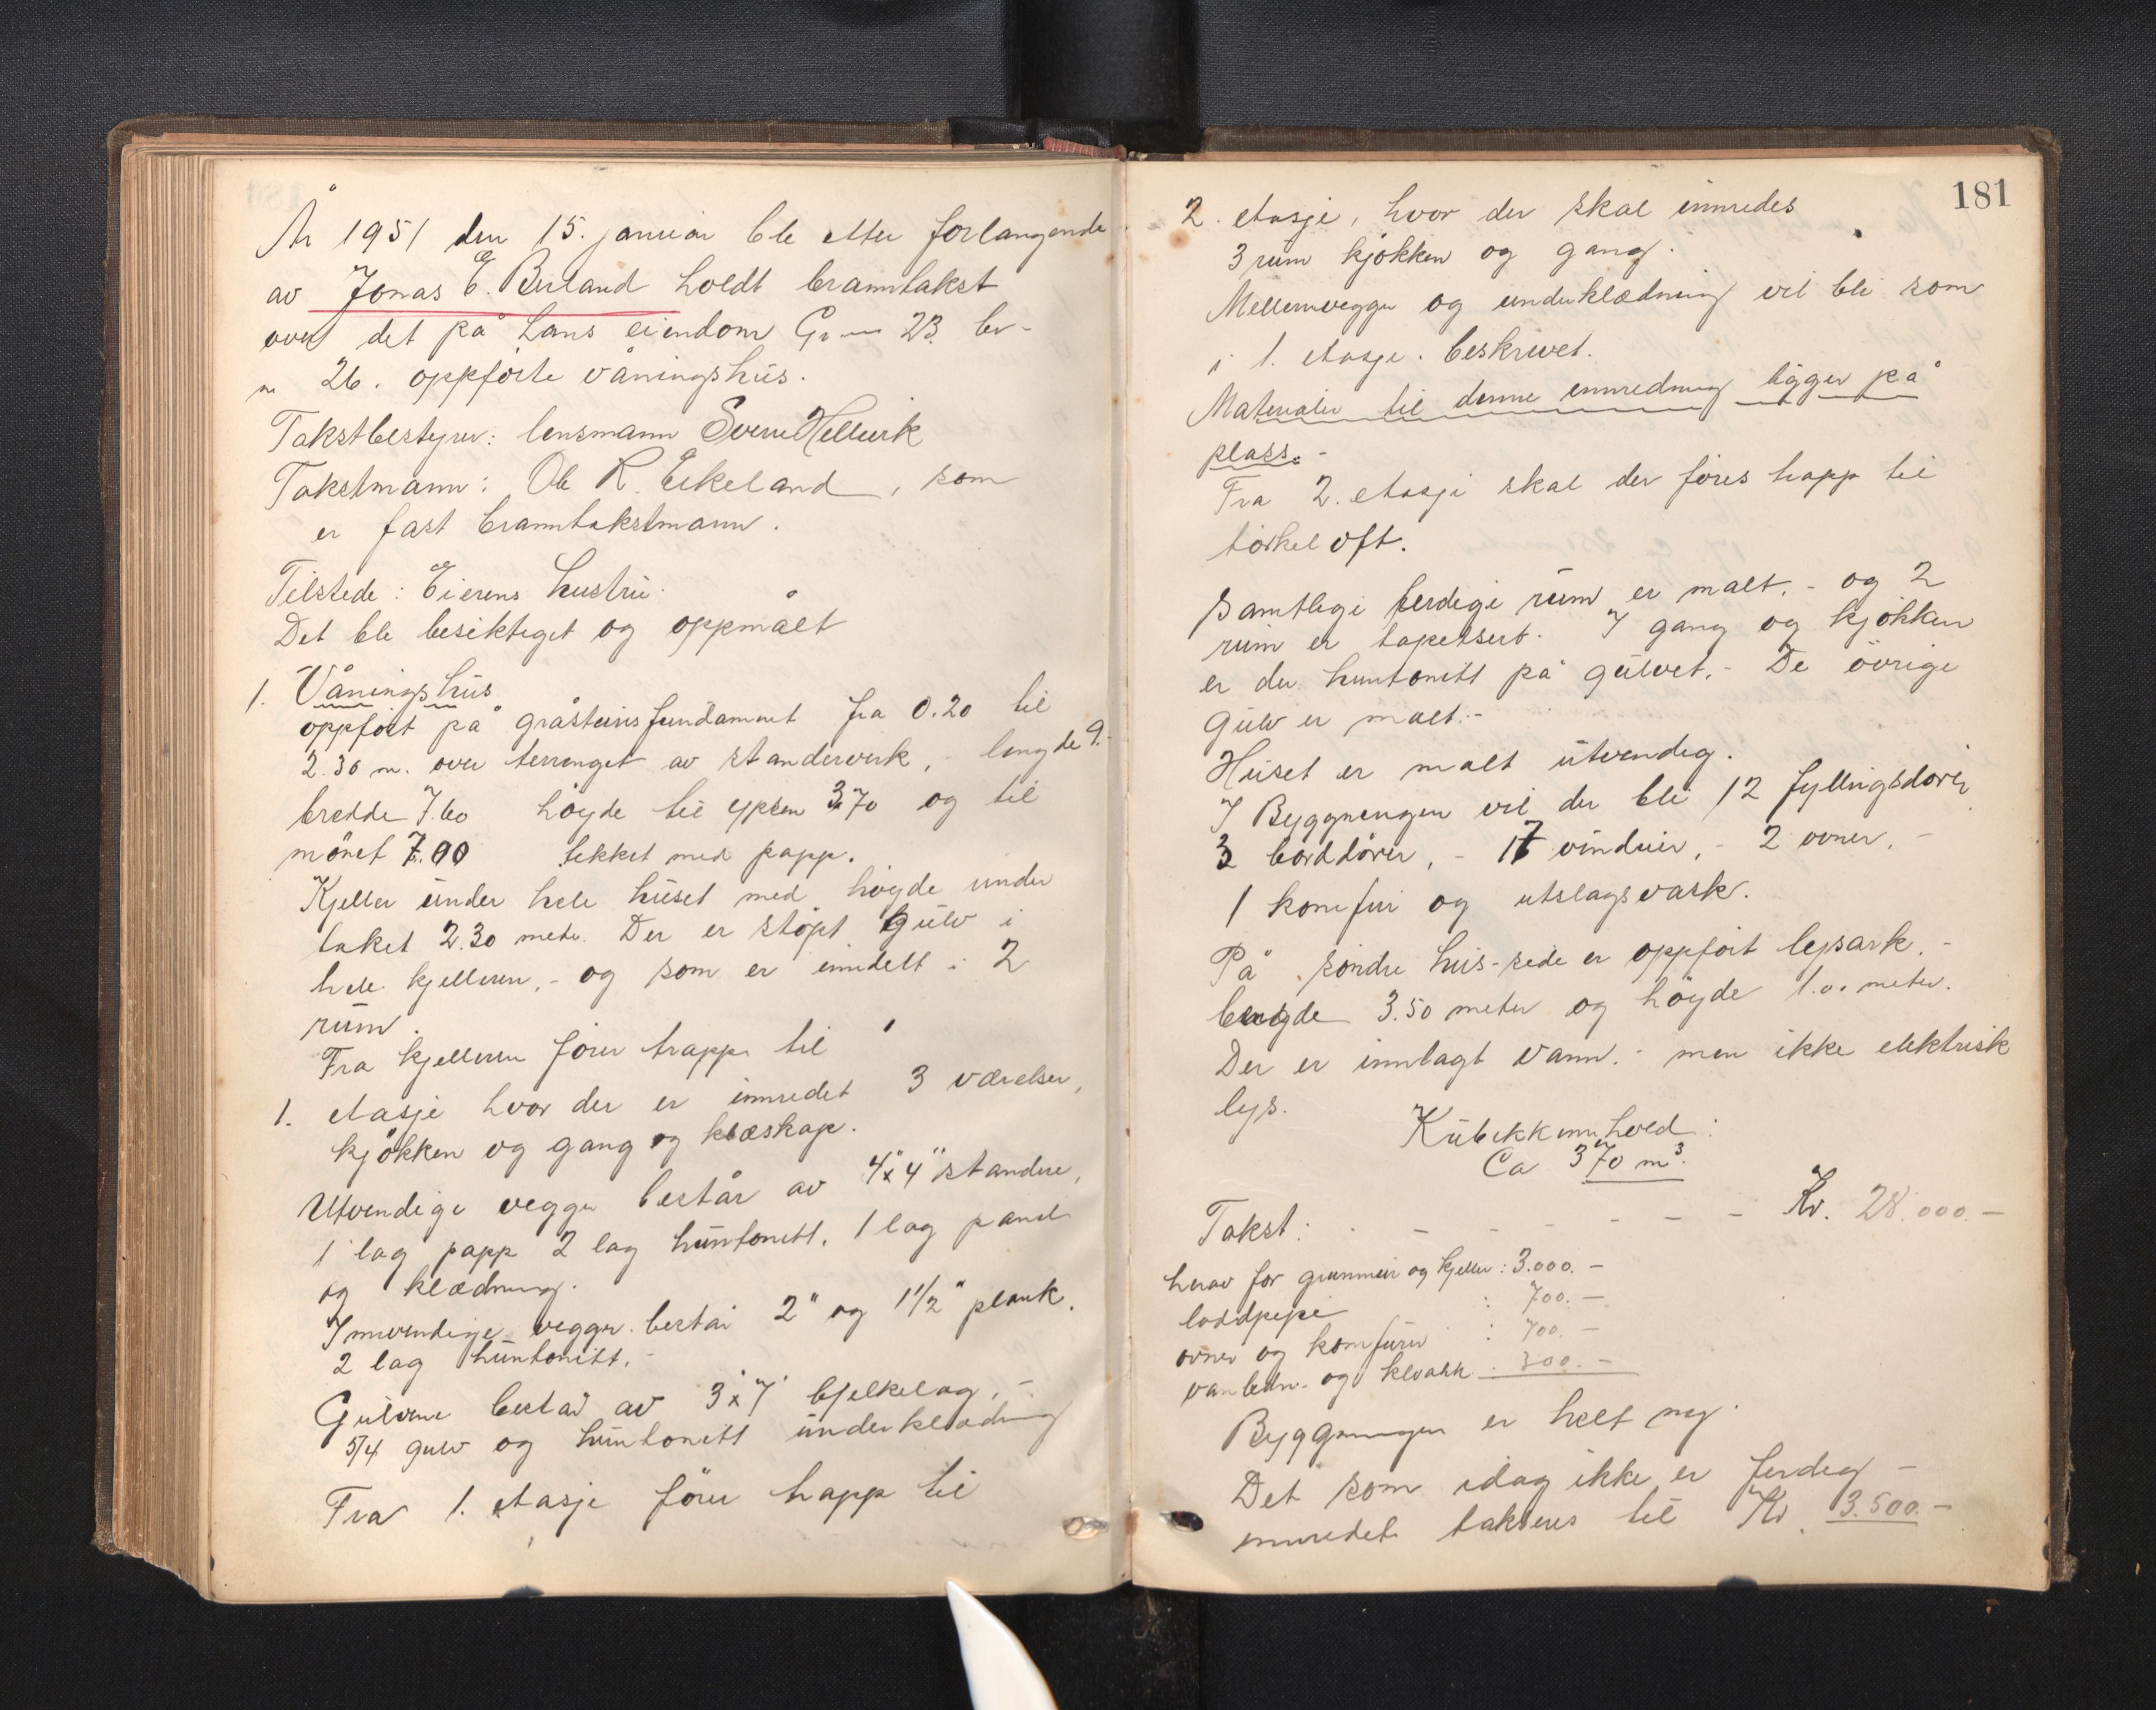 År 1951 den 15. januar ble etter forlangende
av Jonas E. Birland holdt branntakst
over det på hans eiendom Gr. 23 br-
nr 26. oppførte våningshus.
Takstbestyrer: lensmann Sverre Hellvik
Takstmann: Ole R. Eikeland, som
er fast branntakstmann.
Tilstede: Eierens hustru.
Det ble besiktiget og oppmålt
1. Våningshus
oppført på gråsteinsfundament fra 0.20 til
2.30 m. over terrenget av standerverk, lengde 9.-
bredde 7.60 høyde til gesem 3.70 og til
mønet 7.00 tekket med papp.
Kjeller under hele huset med høyde under
taket 2.30 meter. Der er støpt gulv i
hele kjelleren, - og som er inndelt i 2
rum.
Fra kjelleren fører trapp til
1. etasje hvor der er innredet 3 værelser,
kjøkken og gang og klæskap.
Utvendige vegger består av 4"x4" standere,
1 lag papp 2 lag huntonitt, 1 lag panel
og klædning.
Innvendige vegger består 2" og 1 1/2" plank.
2 lag huntonitt.
Gulvene består av 3"x7" bjelkelag, -
5/4 gulv og huntonitt underklædning
Fra 1. etasje fører trapp til
181
2. etasje, hvor der skal innredes
3 rum kjøkken og gang.
Mellemvegger og underklædning vil bli som
i 1. etasje beskrevet.
Materialer til denne innredning ligger på
plass. -
Fra 2. etasje skal der føres trapp til
tørkeloft.
Samtlige ferdige rum er malt, - og 2
rum er tapetsert. I gang og kjøkken
er der huntonitt på gulvet, - De øvrige
gulv er malt. -
Huset er malt utvendig.
I Byggningen vil der bli 12 fyllingsdører,
3 borddører, - 17 vinduer, - 2 ovner, -
1 komfur og utslagsvask.
På søndre hus-side er oppført lysark. -
lengde 3.50 meter og høyde 1.00 meter.
Der er innlagt vann, - men ikke elektrisk
lys.
Kubikkinnhold:
Ca 370 m³.
Takst: - - - - - - Kr. 28.000.-
herav for grunnmur og kjeller: 3.000.-
loddpipe : 700.-
ovner og komfurer : 700.-
vanledn. og kloakk : 300.-
Byggningen er helt ny.
Det som idag ikke er ferdig -
innredet takseres til Kr. 3.500.-